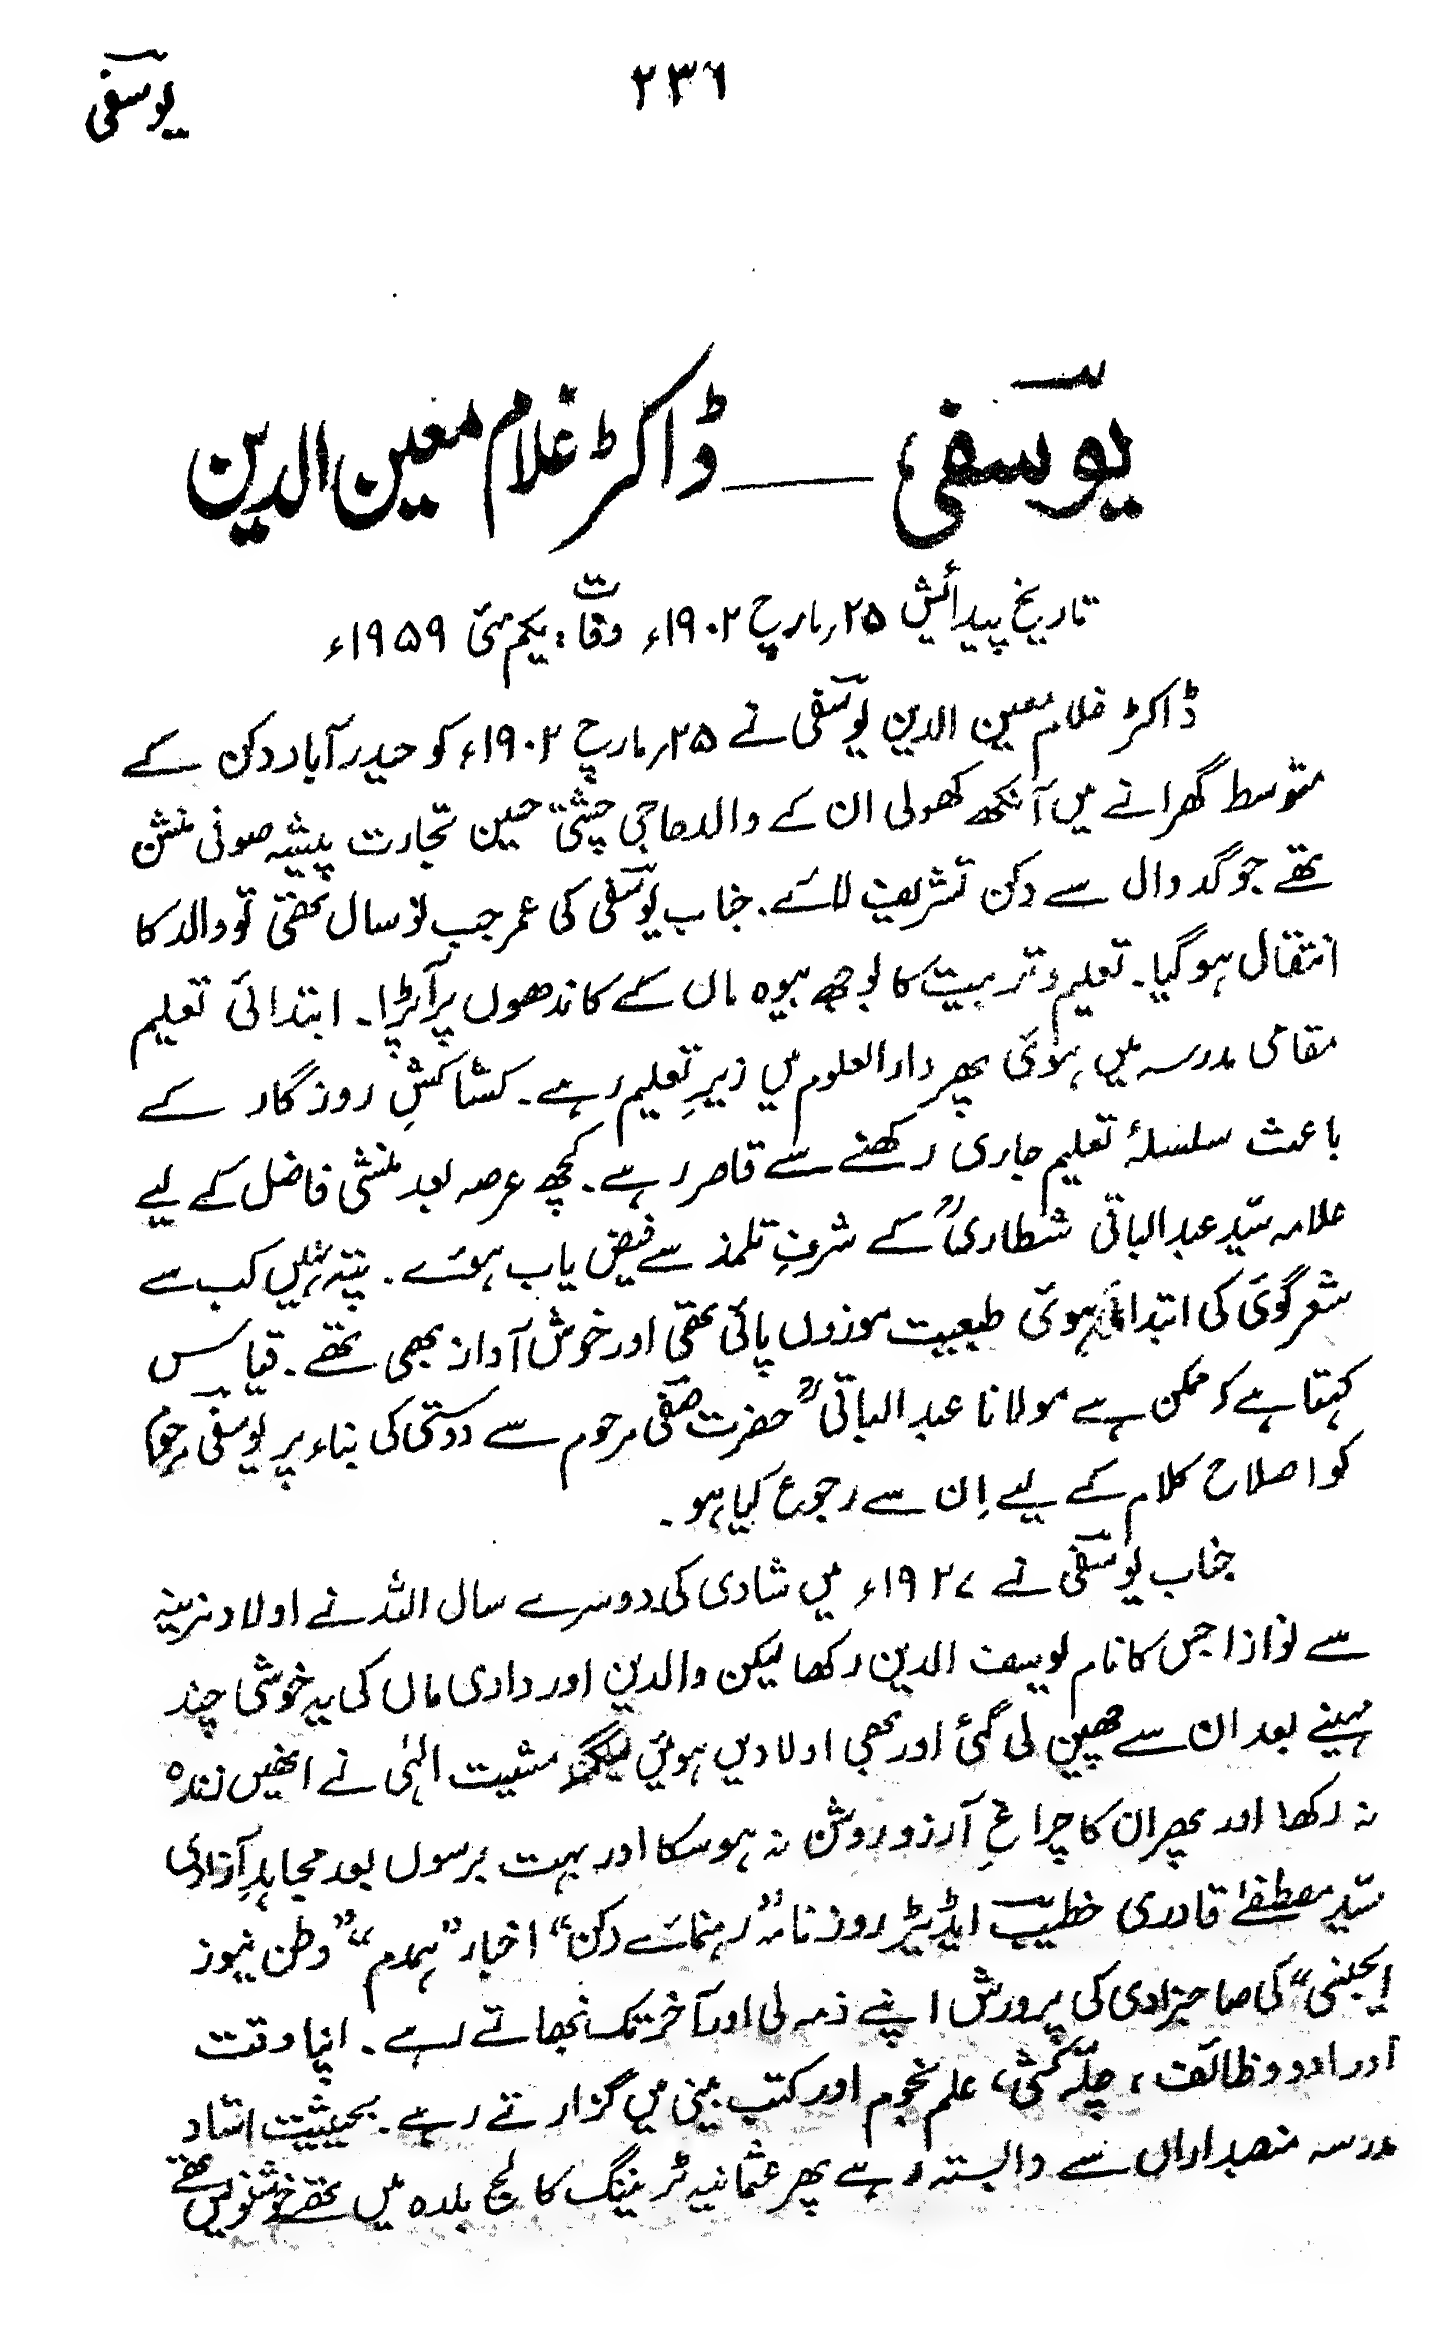 ۲۳۶
یوسفی
یوسفی — ڈاکٹر غلام معین الدین
تاریخ پیدائش ۲۵ مارچ ۱۹۰۲ء وفات: یکم مئی ۱۹۵۹ء
ڈاکٹر غلام معین الدین یوسفی نے ۲۵ مارچ ۱۹۰۲ء کو حیدرآباد دکن کے
متوسط گھرانے میں آنکھ کھولی ان کے والد حاجی چشتی حسین تجارت پیشہ صوفی منش
تھے جو گدوال سے دکن تشریف لائے۔ جناب یوسفی کی عمر جب نو سال تھی تو والد کا
انتقال ہوگیا۔ تعلیم و تربیت کا بوجھ بیوہ ماں کے کاندھوں پر آپڑا۔ ابتدائی تعلیم
مقامی مدرسہ میں ہوئی پھر دارالعلوم میں زیرِ تعلیم رہے۔ کشاکشِ روزگار کے
باعث سلسلۂ تعلیم جاری رکھنے سے قاصر رہے۔ کچھ عرصہ بعد منشی فاضل کے لیے
علامہ سیّد عبدالباقی شطاریؒ کے شرفِ تلمذ سے فیض یاب ہوئے۔ پتہ نہیں کب سے
شعر گوئی کی ابتدا ہوئی طبعیت موزوں پائی تھی اور خوش آواز بھی تھے۔ قیاس
کہتا ہے کہ ممکن ہے مولانا عبدالباقیؒ حضرت صفی مرحوم سے دوستی کی بناء پر یوسفی مرحوم
کو اصلاح کلام کے لیے اِن سے رجوع کیا ہو۔
جناب یوسفی نے ۱۹۲۷ء میں شادی کی دوسرے سال اللہ نے اولاد نرینہ
سے نوازا جس کا نام یوسف الدین رکھا لیکن والدین اور دادی ماں کی یہ خوشی چند
مہینے بعد ان سے چھین لی گئی اور بھی اولادیں ہوئیں لیکن مشیت الہٰی نے انھیں زندہ
نہ رکھا اور پھر ان کا چراغِ آرزو روشن نہ ہوسکا اور بہت برسوں بعد مجاہدِ آزادی
سیّد مصطفےٰ قادری خطیب ایڈیٹر روزنامہ ”رہنمائے دکن“ اخبار ”ہمدم“ ”وطن نیوز
ایجنسی“ کی صاحبزادی کی پرورش اپنے ذمہ لی اور آخر تک نبھاتے رہے۔ اپنا وقت
اوراد و وظائف، چلّہ کشی، علم نجوم اور کتب بینی میں گزارتے رہے۔ بحیثیت استاد
مدرسہ منصبداراں سے وابستہ رہے پھر عثمانیہ ٹریننگ کالج بلدہ میں تھے خوشنویس تھے